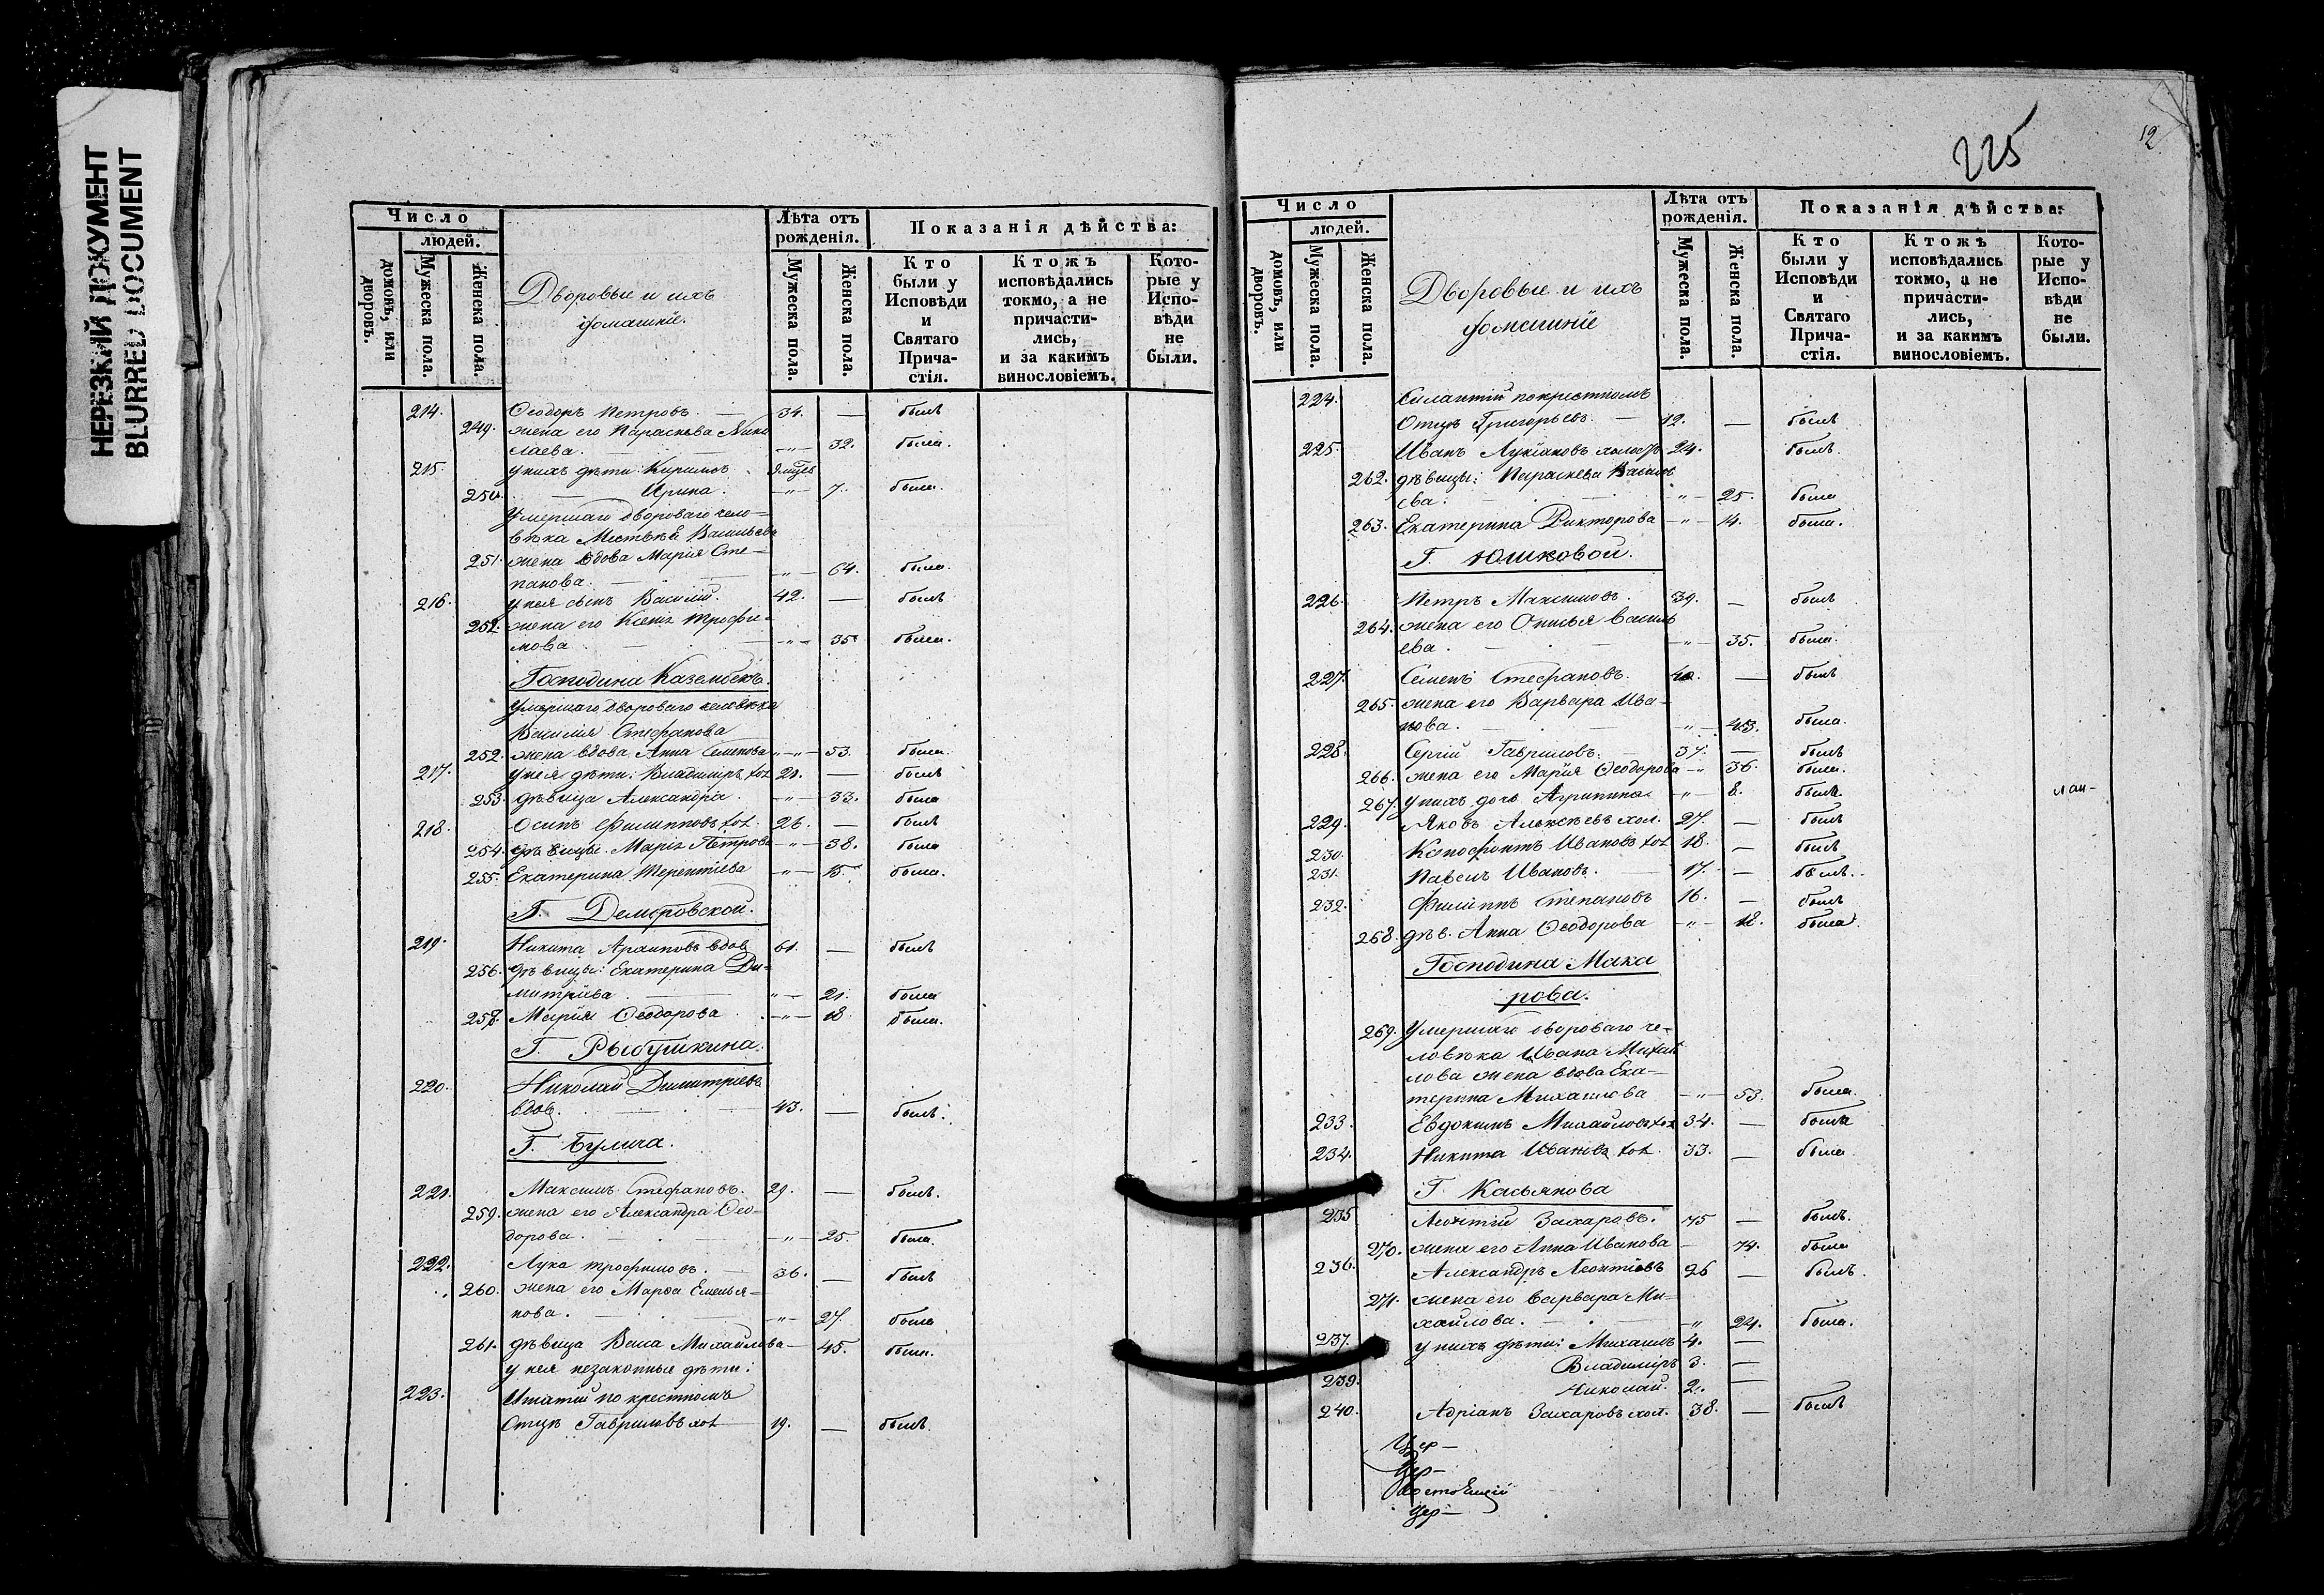 НЕРЕЗКИЙ ДОКУМЕНТ
BLURRED DOCUMENT
Число
людей.
домовъ, или дворовъ.
Мужеска пола.
Женска пола.
Дворовые и ихъ
домашніе.
Лѣта отъ рожденія.
Мужеска пола.
Женска пола.
Показанія дѣйства:
Кто были у Исповѣди и Святаго Прича-стія.
Ктожъ исповѣдались токмо, а не причасти-лись, и за какимъ винословіемъ.
Кото-рые у Испо-вѣди не были.
214. Ѳеодоръ Петровъ. — 34. — былъ
249. жена его Параскева Нико
лаева. — 32. была.
215. у нихъ дѣти: Кирилъ
250. — Ирина. — 7. была.
Умершаго двороваго чело-
вѣка Васильева
251. жена вдова Марія Сте-
панова. — 64. была.
216. у нея сынъ Василій. 42. — былъ
252. жена его Ксенія Трофи-
мова — 35 была.
Господина Казембекъ.
Умершаго двороваго человѣка
Василія Стефанова
252. жена вдова Анна Семенова — 53. была.
217. у нея дѣти: Владиміръ хол 21. — былъ
253. дѣвица Александра. — 33. была
218. Осипъ Филипповъ хол. 26. — былъ
254. дѣвицы: Марія Петрова — 38. была
255. Екатерина Терентіева — 15. была.
Г. Демсровской.
219. Никита Архиповъ вдов 61. — былъ
256. дѣвицы: Екатерина Ди-
митріева — 21. была
257. Марія Ѳеодорова — 18 была.
Г. Рыбушкина.
220. Николай Димитріевъ
вдов. 43. — былъ.
Г. Булича.
221. Максимъ Стефановъ. 29. — былъ.
259. жена его Александра Ѳео-
дорова. — 25. была.
222. Лука Трофимовъ. 36. — былъ
260. жена его Марѳа Емелья-
нова. — 27. была
261. дѣвица Васса Михайлова — 45. была.
у нея незаконныя дѣти:
223. Игнатій по крестномъ
Отцѣ Гавриловъ хол 19. — былъ.
225
12
Число
людей.
домовъ, или дворовъ.
Мужеска пола.
Женска пола.
Дворовые и ихъ
домашніе
Лѣта отъ рожденія.
Мужеска пола.
Женска пола.
Показанія дѣйства:
Кто были у Исповѣди и Святаго Прича-стія.
Ктожъ исповѣдались токмо, а не причасти-лись, и за какимъ винословіемъ.
Кото-рые у Испо-вѣди не были.
224. Силантій по крестномъ
Отцѣ Григорьевъ. — 12. — былъ
225. Иванъ Лукіановъ холос 24. былъ.
262. дѣвицы: Параскева Василь
ева. — 25. была
263. Екатерина Викторова — 14. была.
Г. Юшковой.
226. Петръ Максимовъ. 39. — былъ
264. жена его Василь
ева. — 35. была.
227. Семенъ Стефановъ. — былъ
265. жена его Варвара Ива-
нова. — 43. была.
228. Сергій Гавриловъ. 37. — былъ
266. жена его Марія Ѳеодорова — 36. была.
267. у нихъ дочь Агрипина — 8. была.
229. Яковъ Алексѣевъ хол. 27. — былъ
230. Ксенофонтъ Ивановъ хол 18. — былъ
231. Павелъ Ивановъ. 17. — былъ.
232. Филиппъ Степановъ 16. — былъ
268. дѣв. Анна Ѳеодорова — 18. была.
Господина Мака
рова.
269. Умершаго двороваго че-
ловѣка Ивана Михай
лова жена вдова Ека-
терина Михайлова — 53. была.
233. Евдокимъ Михайловъ хол 34. — былъ
234. Никита Ивановъ хол. 33. — была.
Г Касьянова
235 Леонтій Захаровъ. 75 — былъ.
270. жена его Анна Иванова — 74. была
236. Александръ Леонтіевъ 26 — былъ.
271. жена его Варвара Ми-
хайлова. — 24. была.
237. у нихъ дѣти: Михаилъ 4. —
Владиміръ 3. —
239. Николай. 2. —
240. Адріанъ Захаровъ хол. 38. — былъ
Цер —
Цер —
Цер —